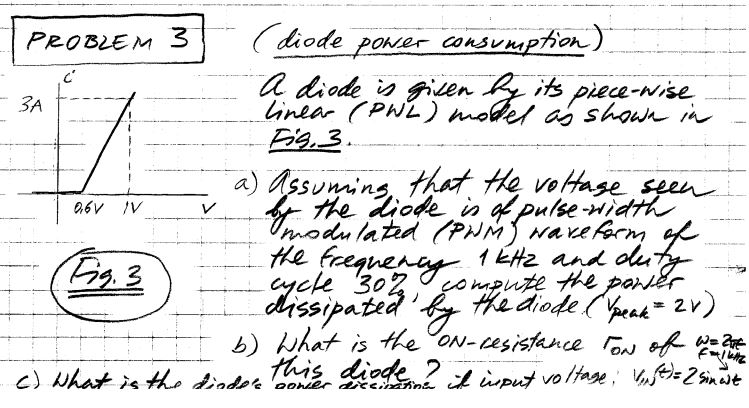 PROBLEM 3
(diode power consumption)
A diode is given by its piece-wise
linear (PWL) model as shown in
Fig. 3.
i
3A
0.6V 1V V
Fig. 3
a) Assuming that the voltage seen
by the diode is of pulse-width
modulated (PWM) waveform of
the frequency 1 kHz and duty
cycle 30% compute the power
dissipated by the diode. (Vpeak = 2V)
b) What is the ON-resistance rON of
this diode?
ω=2πf
f=1kHz
c) What is the diode's power dissipation if input voltage: VIN(t)=2 sin ωt